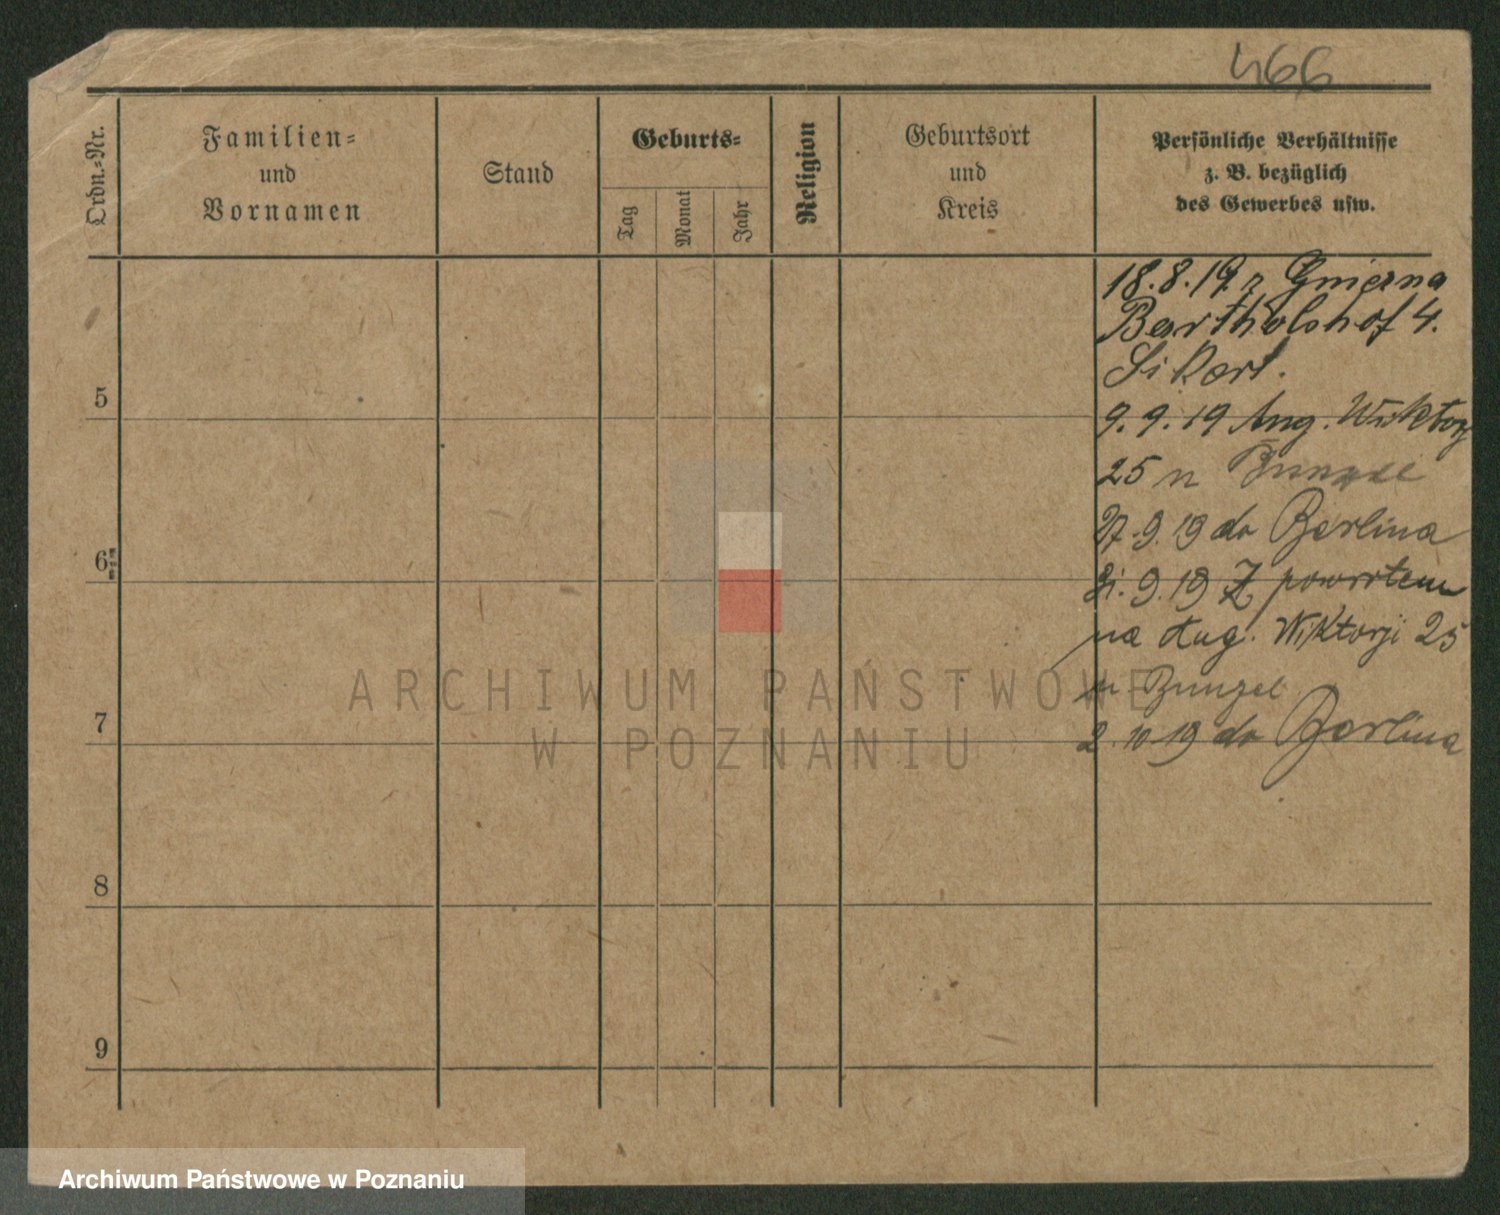 466
Ordn.-Nr.
Familien-
und
Vornamen
Stand
Geburts-
Tag
Monat
Jahr
Religion
Geburtsort
und
Kreis
Persönliche Verhältnisse
z. B. bezüglich
des Gewerbes usw.
18.8.19 z Gniezna
Bartholshof 4.
5
9.9.19 Aug. Wiktorji
25 u
27.9.19 do Berlina
6
9.19 Z powrotem
na Aug. Wiktorji 25
u Bunzel
7
2.10.19 do Berlina
8
9
ARCHIWUM PAŃSTWOWE
W POZNANIU
Archiwum Państwowe w Poznaniu